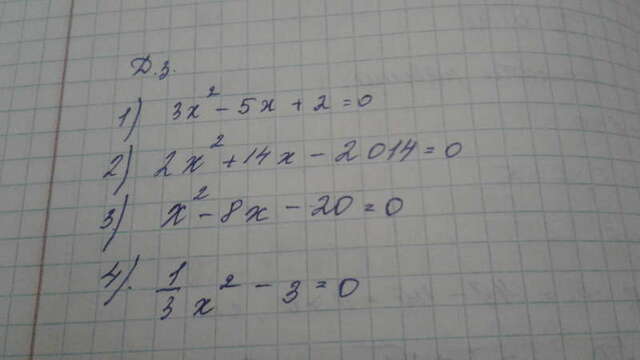 Д.з.
1) 3x² - 5x + 2 = 0
2) 2x² + 14x - 2014 = 0
3) x² - 8x - 20 = 0
4). 1/3 x² - 3 = 0